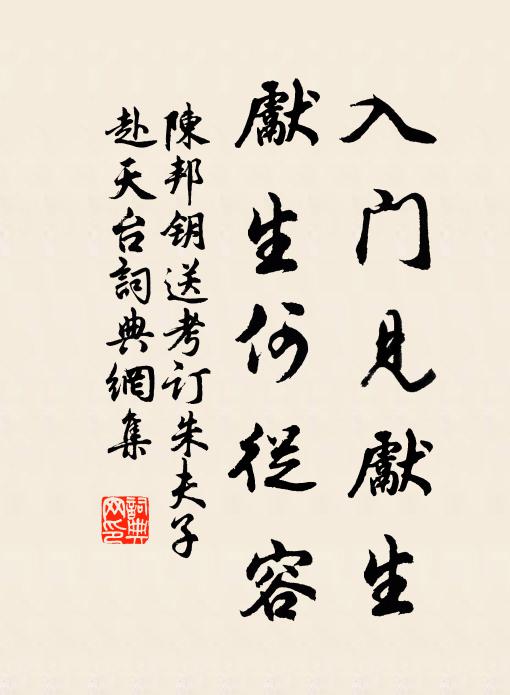 入门見獻生
獻生何從容
陳邦钥送考订朱夫子
赴天台詞典網集
詞典网印